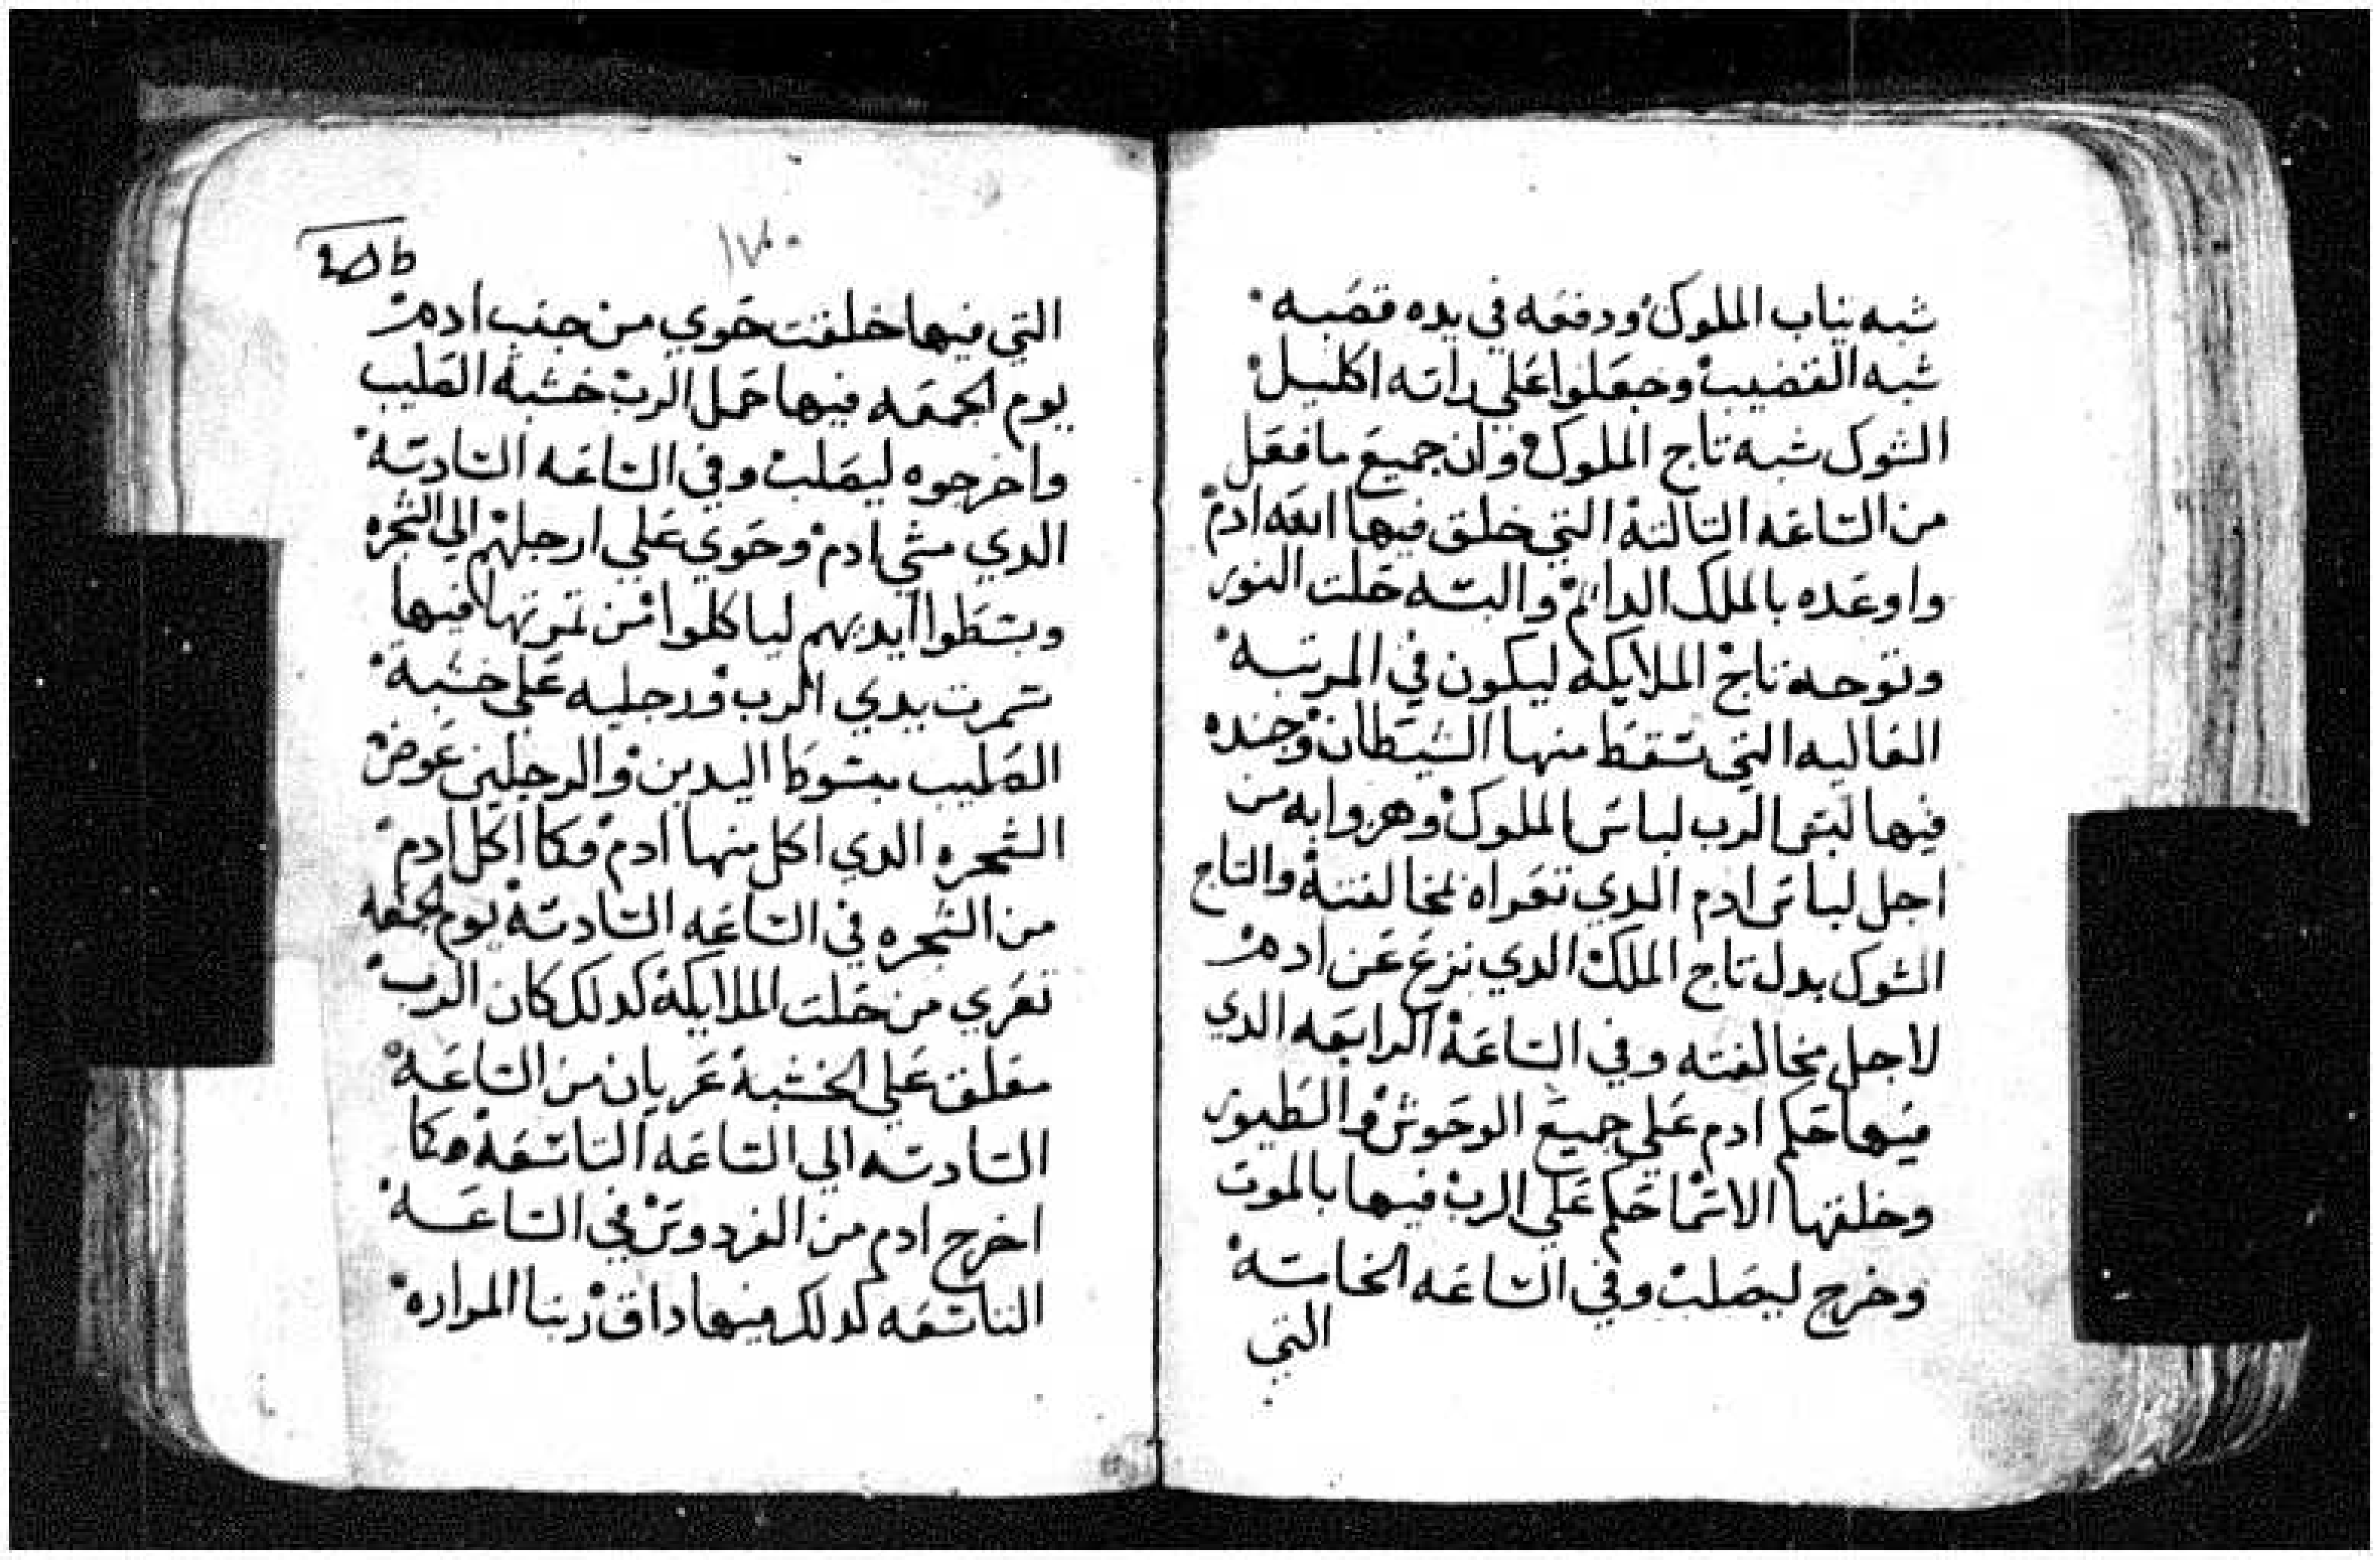 شبه ثياب الملوك ودفعه في يده قصبه
شبه القضيب وجعلوا علي راسه اكليل
الشوك شبه تاج الملوك وان جميع ما فعل
من الساعه التالتة التي خلق فيها ادم
واوعده بالملك الدايم والبسه حلت النور
وتوجه تاج الملايكة ليكون في المرتبة
العاليه التي سقط منها الشيطان وجنده
فيها لبس الرب لباس الملوك وهزوا به من
اجل لباس ادم الدي تعراه بمخالفتة والتاج
الشوك بدل تاج الملك الدي نزع عن ادم
لاجل مخالفته وفي الساعة الرابعه الدي
فيها حكم ادم علي جميع الوحوش والطيور
وخلقها الاسما حكم علي الرب فيها بالموت
وخرج ليصلب وفي الساعه الخامسة
التي
١٧٠
التي فيها خلقت حوي من جنب ادم
يوم الجمعه فيها حمل الرب خشبة الصليب
واخرجوه ليصلب وفي الساعه السادسة
الدي مشي ادم وحوي علي ارجلهم الي الشجره
وبسطوا ايديهم لياكلوا من تمرتها فيها
سمرت يدي الرب ورجليه علي خشبة
الصليب مبسوطا اليدين والرجلين عوض
الشجره الدي اكل منها ادم فكما اكل ادم
من الشجره في الساعه السادسة يوم الجمعه
تعري من حلت الملايكة كدلك كان الرب
معلق علي الخشبة عريان من الساعة
السادسه الي الساعه التاسعة فكما
اخرج ادم من الفردوس في الساعة
التاسعه كدلك فيها داق ربنا المراره